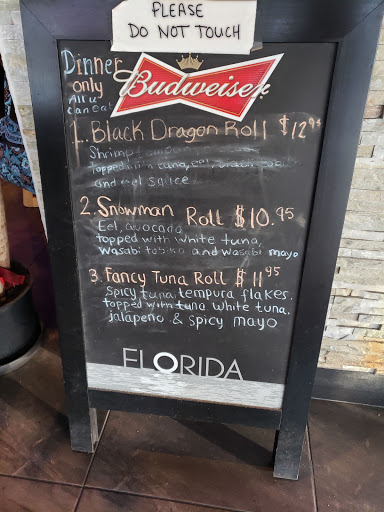 PLEASE
DO NOT TOUCH
Dinner
only
All u
can eat
Budweiser
1. Black Dragon Roll $12.95
Shrimp
topped with tuna, eel,
and eel sauce
2. Snowman Roll $10.95
Eel, avocado
topped with white tuna,
wasabi and wasabi mayo
3. Fancy Tuna Roll $11.95
Spicy tuna tempura flakes.
topped with tuna white tuna.
jalapeno & spicy mayo
FLORIDA